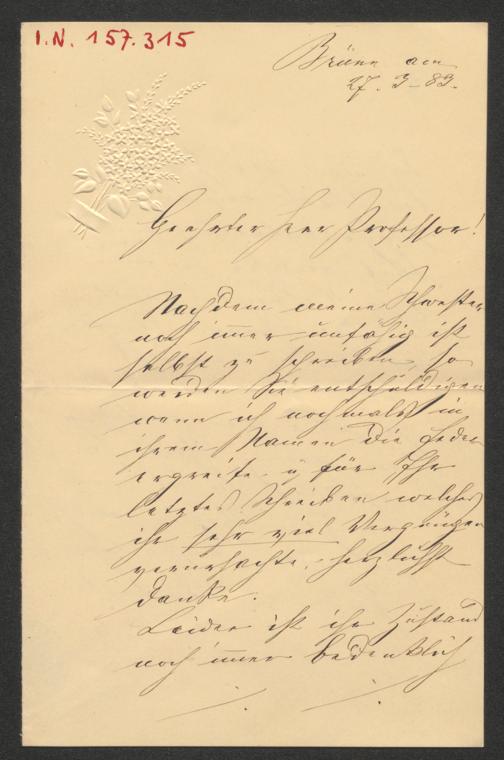 I.N. 157.315
Brünn am
27. 3-83.
Geehrter Herr Professor!
Nachdem meine Schwester
noch immer unfähig ist
selbst zu schreiben, so
werden Sie entschuldigen
wenn ich nochmals in
ihrem Namen die Feder
ergreife u für Ihr
letztes Schreiben welches
ihr sehr viel Vergnügen
verursachte, herzlichst
danke.
Leider ist ihr Zustand
noch immer bedenklich